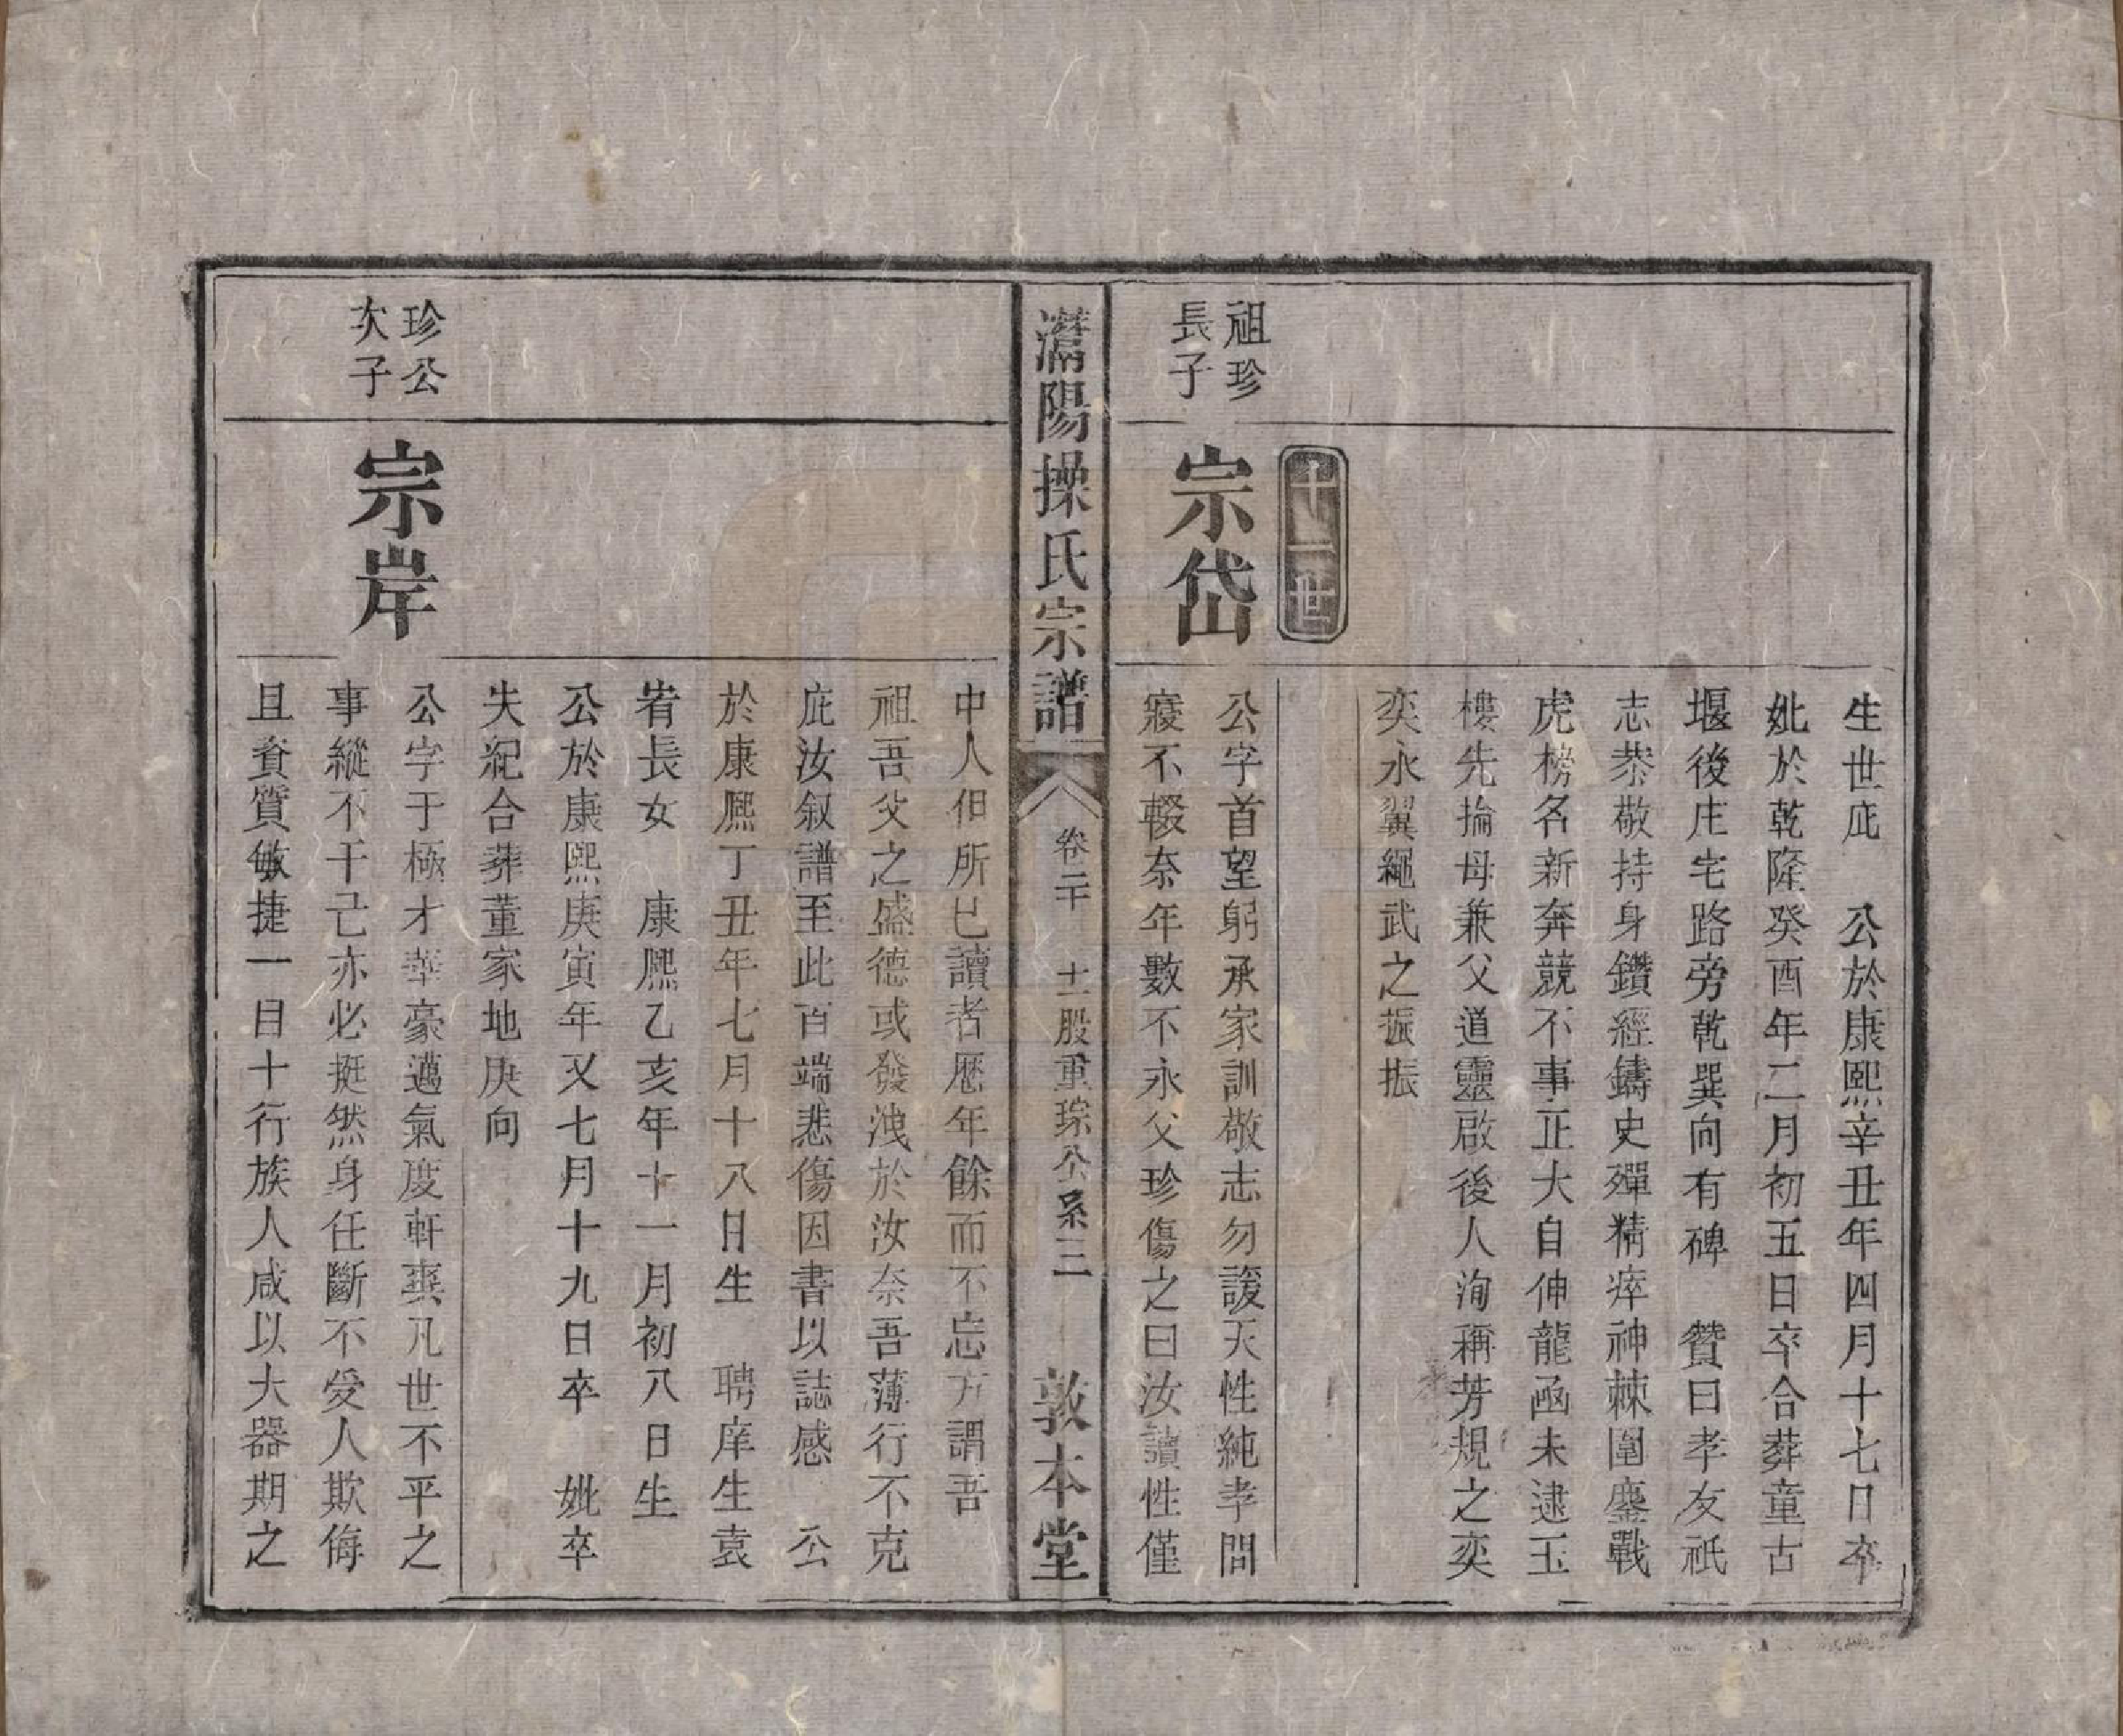 生世庇　公於康熙辛丑年四月十七日卒
妣於乾隆癸酉年二月初五日卒合葬童古
堰後庄宅路旁乾巽向有碑　贊曰孝友祇
志恭敬持身鑽經鑄史殫精瘁神棘圍鏖戰
虎榜名新奔競不事正大自伸龍凾未逮玉
樓先掄母兼父道靈啟後人洵稱芳規之奕
奕永翼繩武之振振
十一世
祖珍
長子
宗岱
公字首望躬承家訓敬志勿諼天性純孝問
寢不輟奈年數不永父珍傷之曰汝讀性僅
灊陽操氏宗譜
卷二十　十一股重琮公系三
敦本堂
中人但所已讀者歷年餘而不忘方謂吾
祖吾父之盛德或發洩於汝奈吾薄行不克
庇汝叙譜至此百端悲傷因書以誌感　公
於康熈丁丑年七月十八日生　聘庠生袁
峕長女　康熈乙亥年十一月初八日生
公於康熙庚寅年又七月十九日卒　妣卒
失紀合葬董家地庚向
珍公
次子
宗岸
公字于極才華豪邁氣度軒爽凡世不平之
事縱不干己亦必挺然身任斷不受人欺侮
且資質敏捷一目十行族人咸以大器期之